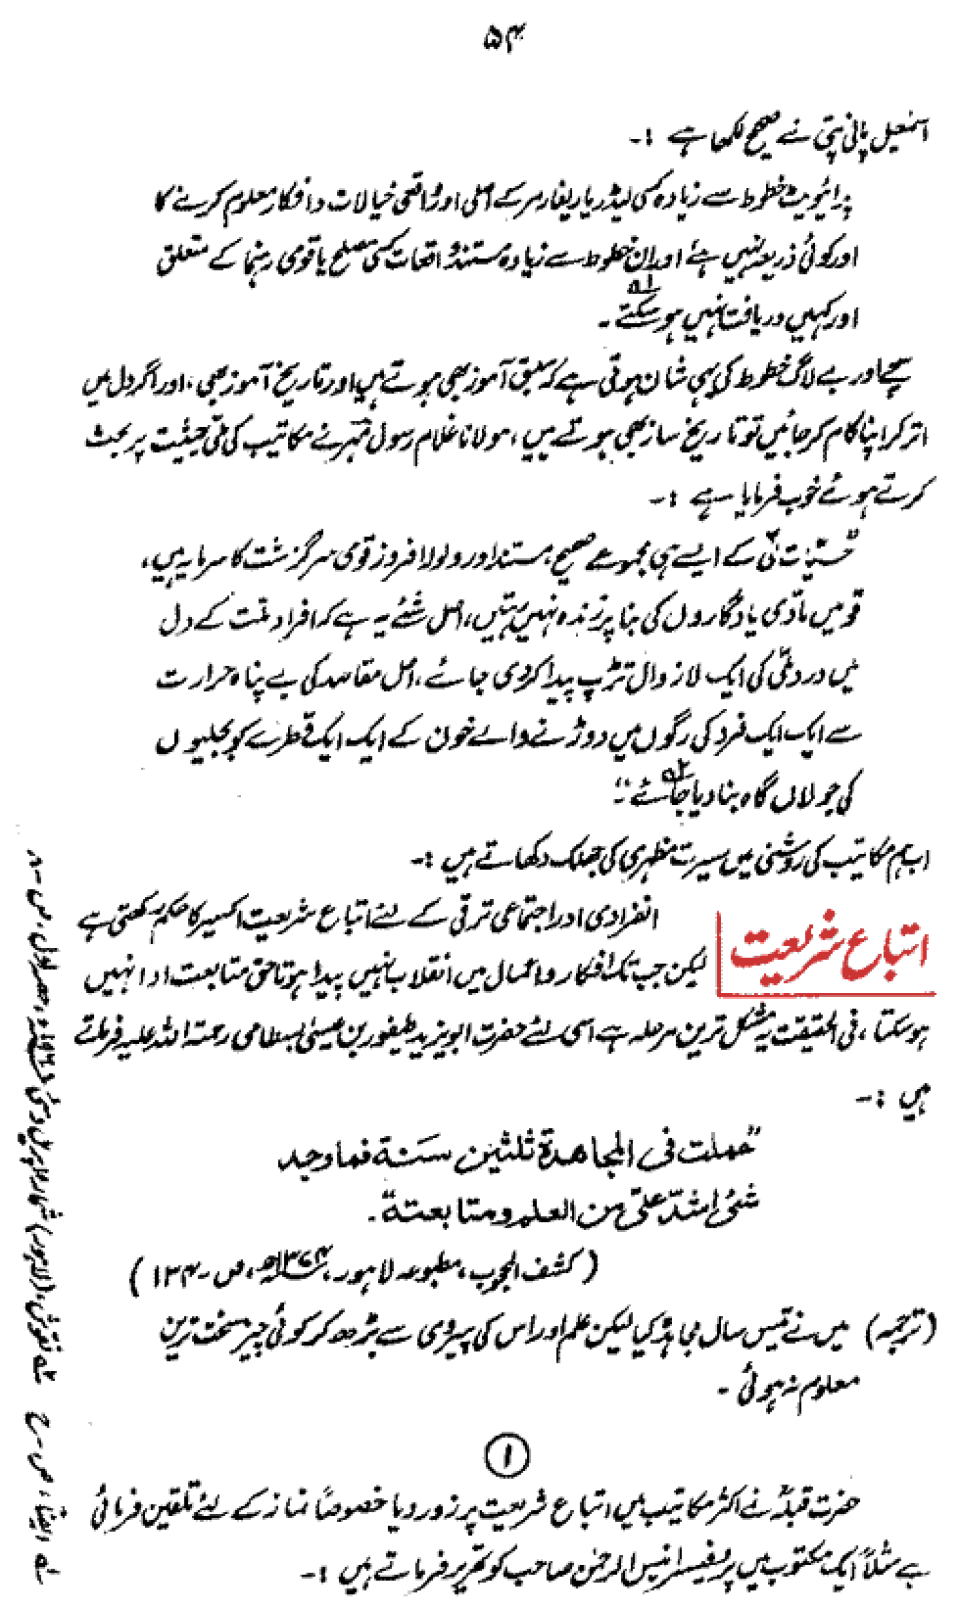 ۵۴
اسمٰعیل پانی پتی نے صحیح لکھا ہے :۔
پرائیویٹ خطوط سے زیادہ کسی لیڈر یا ریفارمر کے اصلی اور واقعی خیالات و افکار معلوم کرنے کا
اور کوئی ذریعہ نہیں ہے اور ان خطوط سے زیادہ مستند واقعات کسی مصلح یا قومی رہنما کے متعلق
اور کہیں دریافت نہیں ہو سکتے ۔ لہ
سچے اور بے لاگ خطوط کی یہی شان ہوتی ہے کہ سبق آموز بھی ہوتے ہیں اور تاریخ آموز بھی ، اور اگر دل میں
اتر کر اپنا کام کر جائیں تو تاریخ ساز بھی ہوتے ہیں ، مولانا غلام رسول مہر نے مکاتیب کی ملّی حیثیت پر بحث
کرتے ہوئے خوب فرمایا ہے :۔
"حسّیات ملّی کے ایسے ہی مجموعے صحیح ، مستند اور ولولا فروز قومی سرگزشت کا سرمایہ ہیں ،
قومیں مادّی یادگاروں کی بنا پر زندہ نہیں رہتیں ، اصل شئے یہ ہے کہ افراد ملّت کے دل
میں درد ملّی کی ایک لازوال تڑپ پیدا کردی جائے ، اصل مقاصد کی بے پناہ حرارت
سے ایک ایک فرد کی رگوں میں دوڑنے والے خون کے ایک ایک قطرے کو بجلیوں
کی جولاں گاہ بنا دیا جائے ۔" ٢ہ
اب ہم مکاتیب کی روشنی میں سیرت مظہری کی جھلک دکھاتے ہیں :۔
اتباع شریعت
انفرادی اور اجتماعی ترقی کے لئے اتباع شریعت اکسیر کا حکم رکھتی ہے
لیکن جب تک افکار و اعمال میں انقلاب نہیں پیدا ہوتا حق متابعت ادا نہیں
ہو سکتا ، فی الحقیقت یہ مشکل ترین مرحلہ ہے اسی لئے حضرت ابو یزید طیفور بن عیسیٰ بسطامی رحمۃ اللہ علیہ فرماتے
ہیں :۔
"عملت فی المجاهدة ثلثین سنة فما وجد
شئ اشدّ علیّ من العلم ومتابعته" ۔
( کشف المحجوب ، مطبوعہ لاہور ، ۱۳۷۴ھ ، ص ۔ ۱۳۴ )
(ترجمہ) میں نے تیس سال مجاہدہ کیا لیکن علم اور اس کی پیروی سے بڑھ کر کوئی چیز سخت ترین
معلوم نہ ہوئی ۔
۱
حضرت قبلہؒ نے اکثر مکاتیب میں اتباع شریعت پر زور دیا خصوصاً نماز کے لئے تلقین فرمائی
ہے مثلاً ایک مکتوب میں پروفیسر انیس الرحمٰن صاحب کو تحریر فرماتے ہیں :۔
لہ ایضاً ، ص ۔ ح
٢ہ نقوش ، (لاہور)